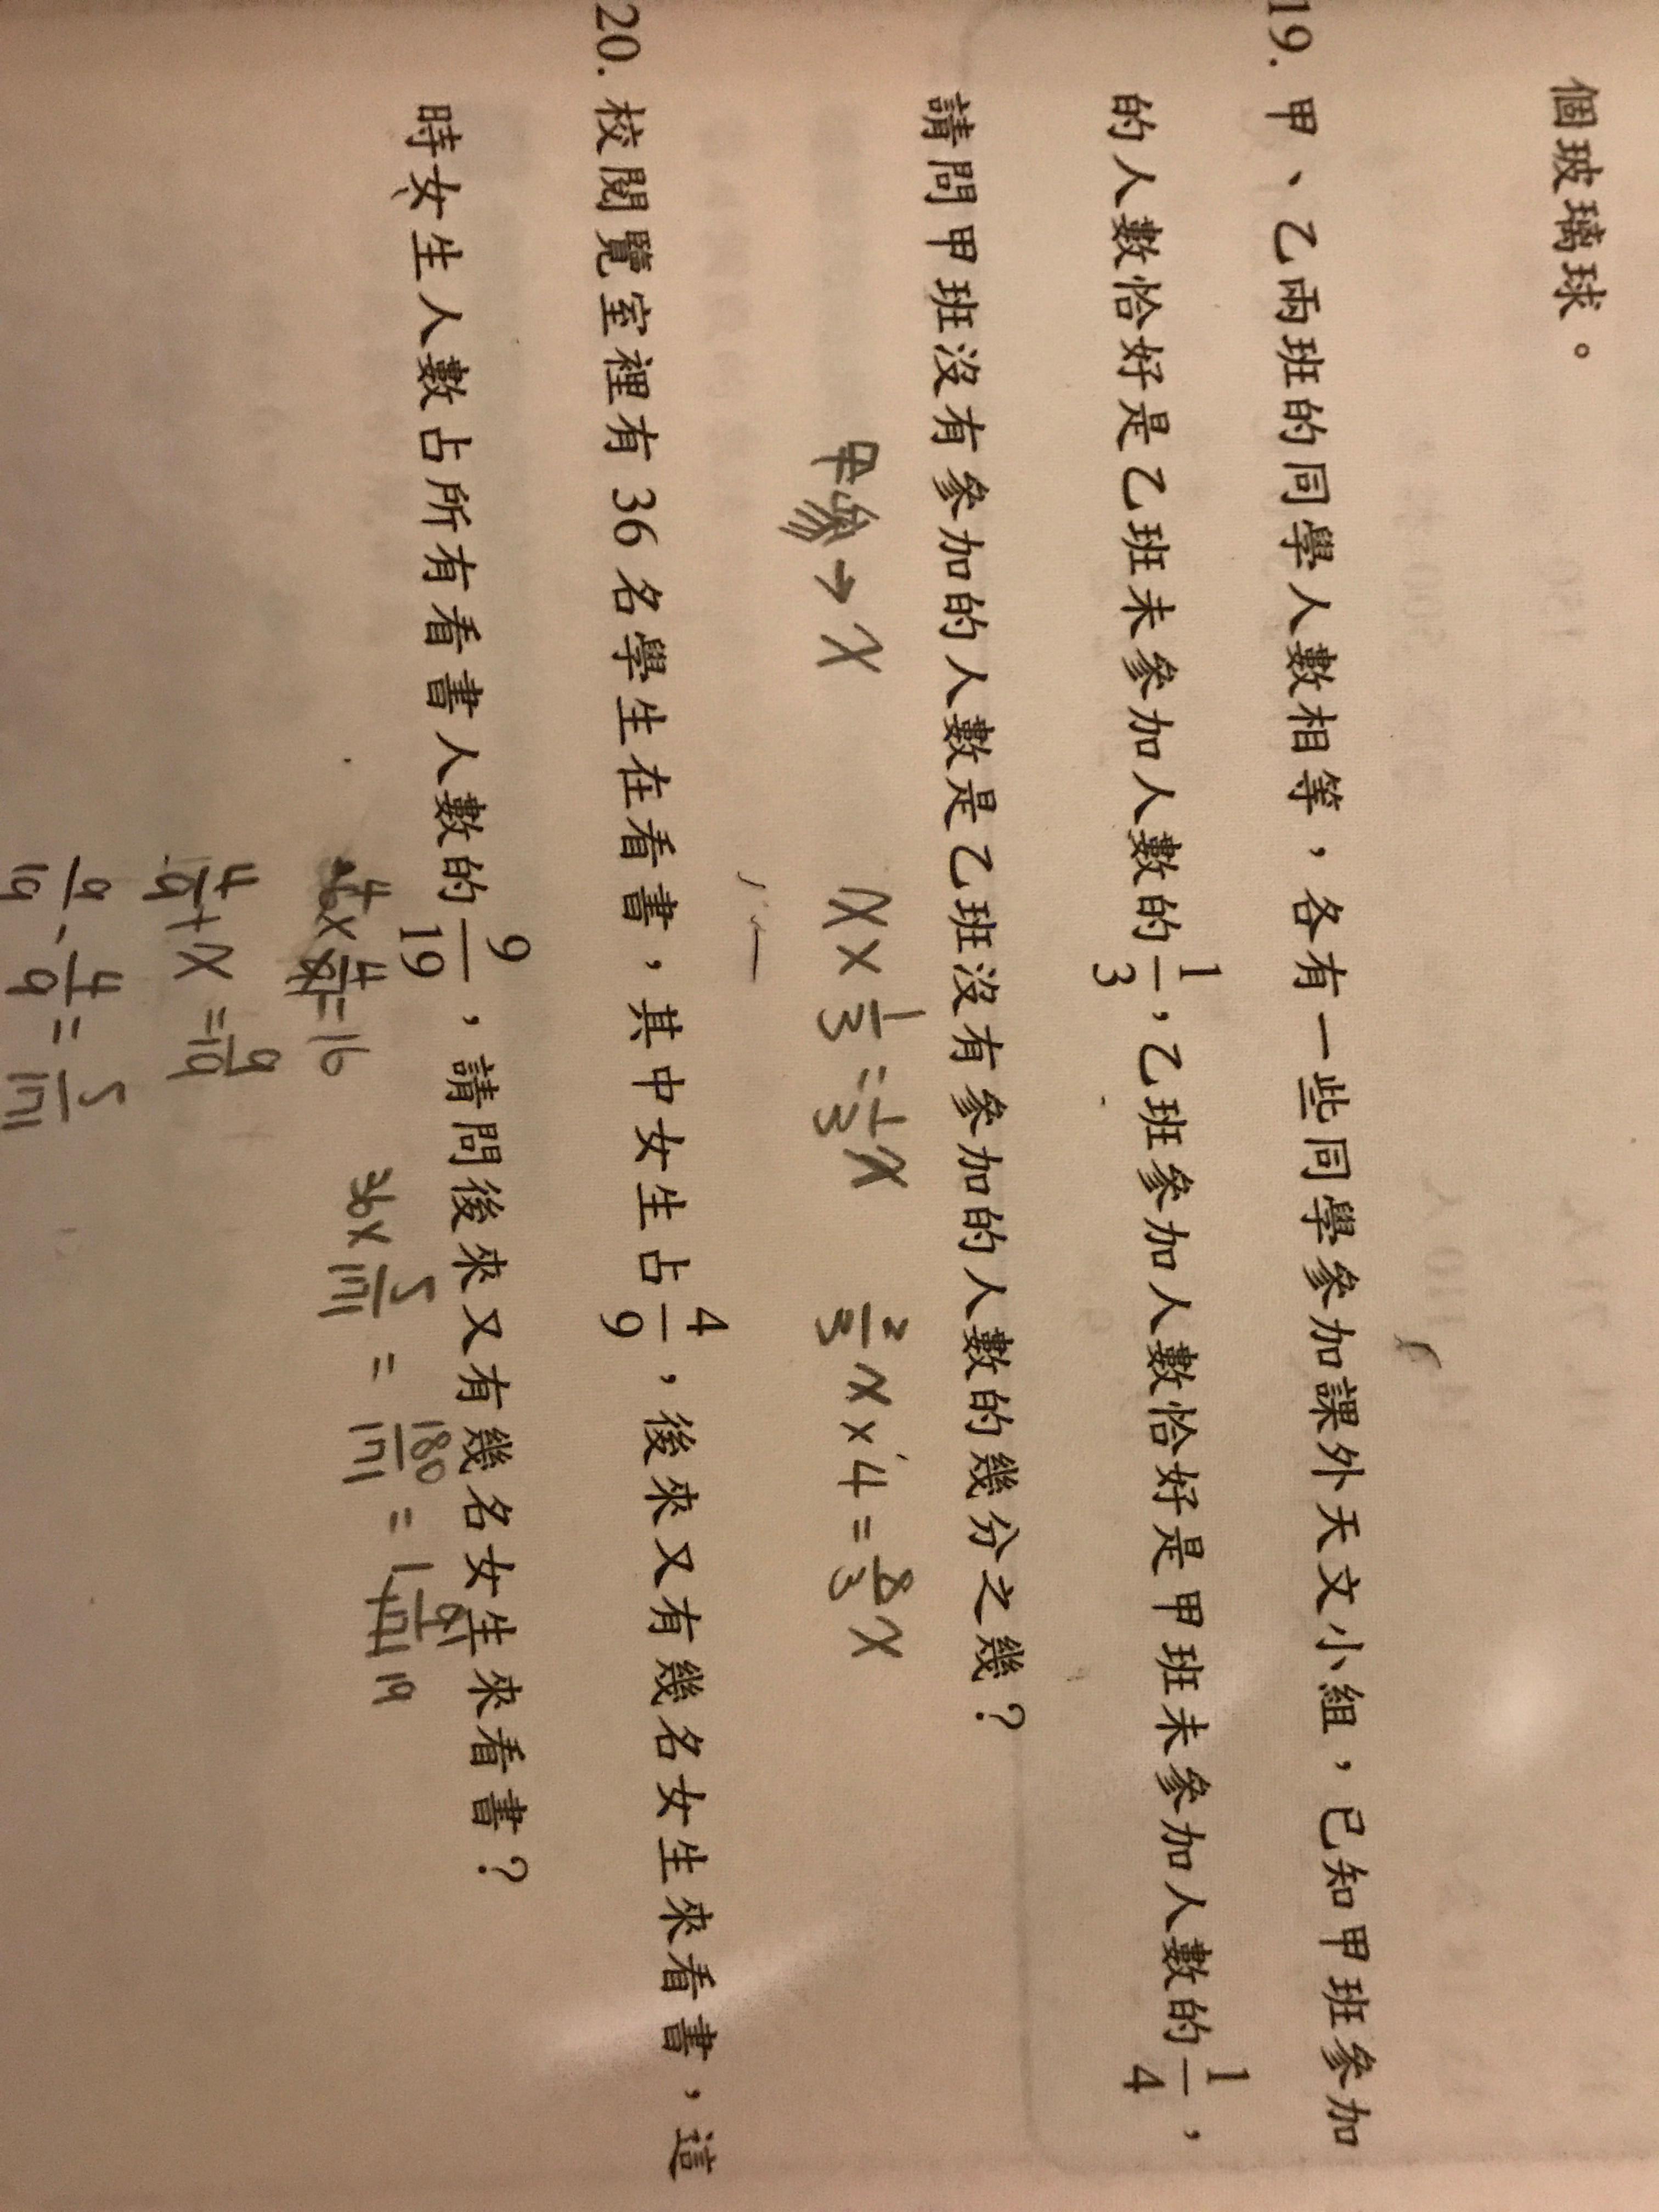 個玻璃球。
19. 甲、乙兩班的同學人數相等，各有一些同學參加課外天文小組，已知甲班參加
的人數恰好是乙班未參加人數的1/3，乙班參加人數恰好是甲班未參加人數的1/4，
請問甲班沒有參加的人數是乙班沒有參加的人數的幾分之幾？
甲參→x x×1/3=1/3x 2/3x×4=8/3x
20. 校閱覽室裡有36名學生在看書，其中女生占4/9，後來又有幾名女生來看書，這
時女生人數占所有看書人數的9/19，請問後來又有幾名女生來看書？
36×4/9=16 36×5/171=180/171=1 1/19
4/9+x=9/19
9/19-4/9=5/171